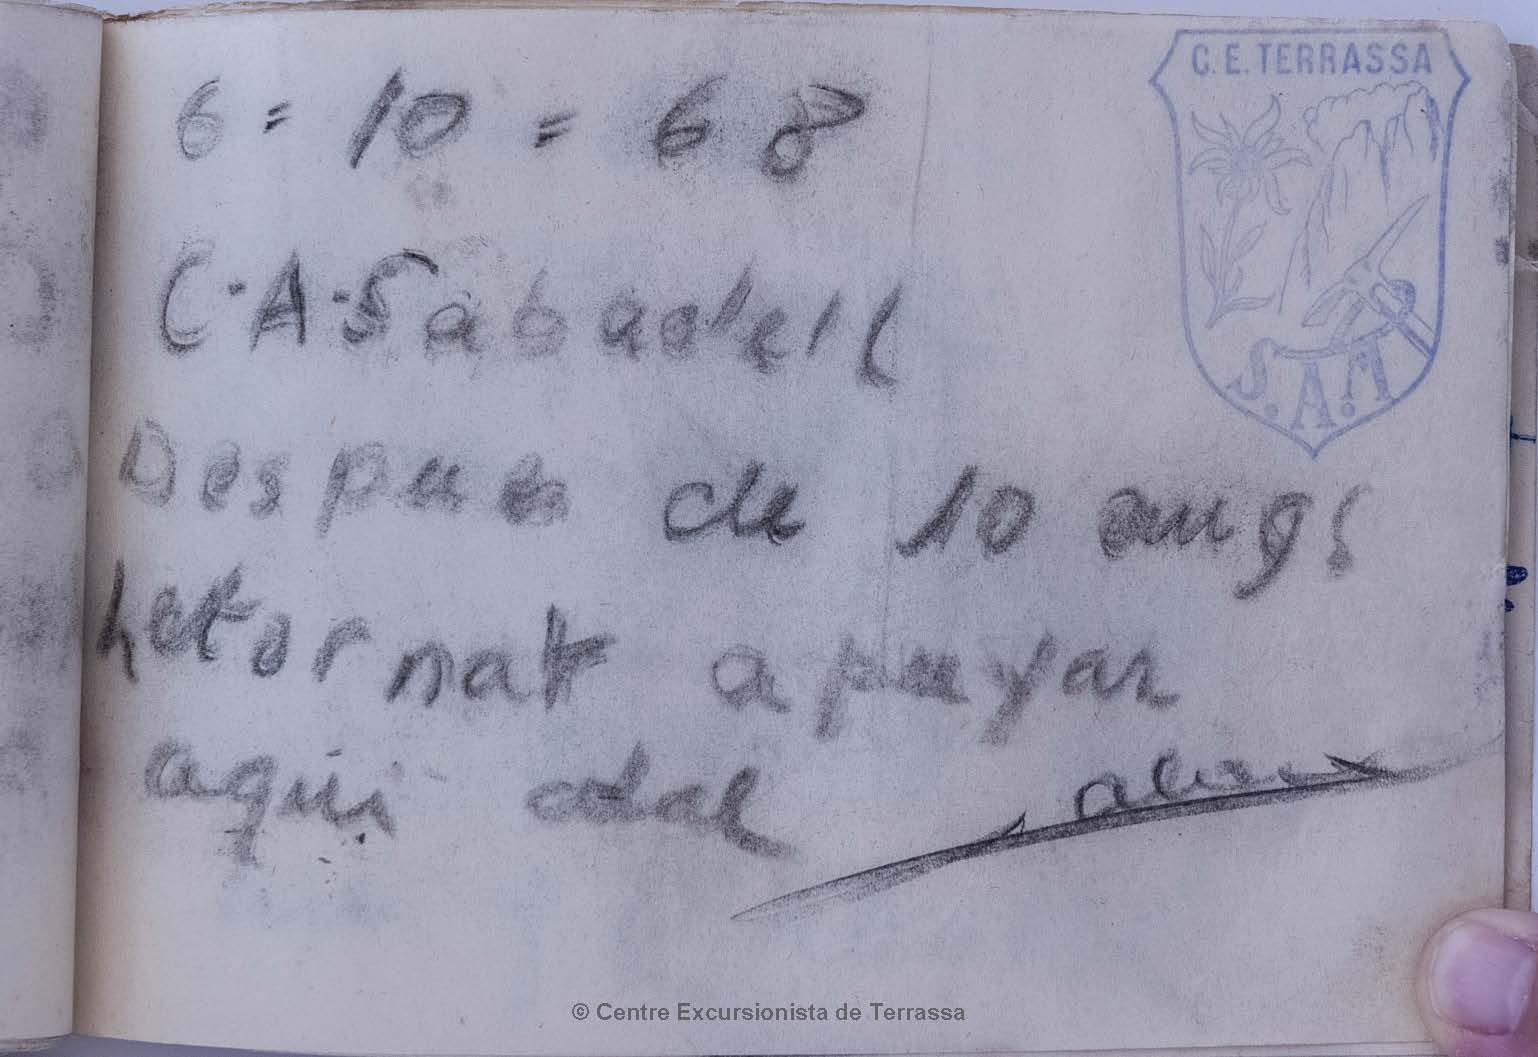 C. E. TERRASSA
S. A. M.
6 = 10 = 68
C·A·Sabadell
Despues de 10 anys
he tornat a puyar
aqui dal
© Centre Excursionista de Terrassa